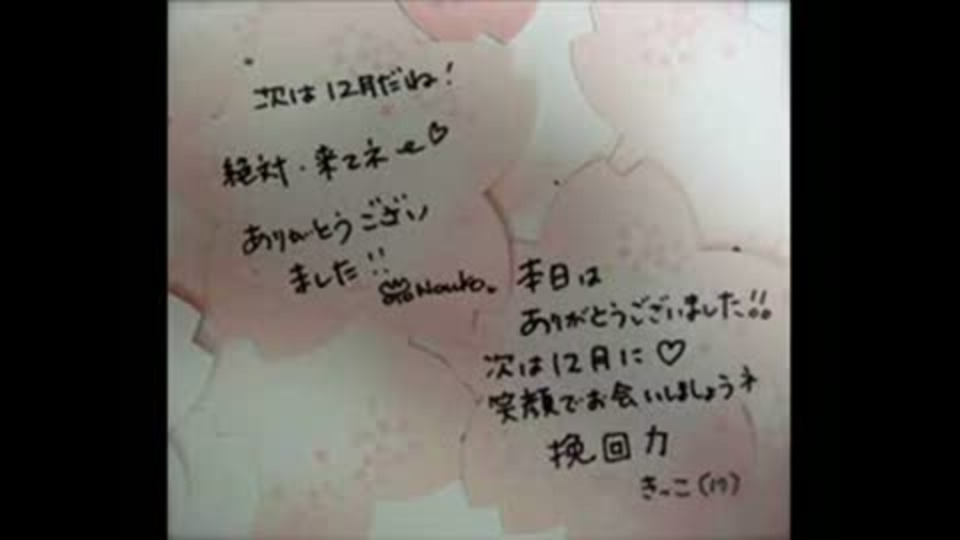 次は12月だね!
絶対・来てネ〜♡
ありがとうござい
ました!!
Naoko.
本日は
ありがとうございました!!
次は12月に♡
笑顔でお会いしましょうネ
挽回力
きっこ(17)